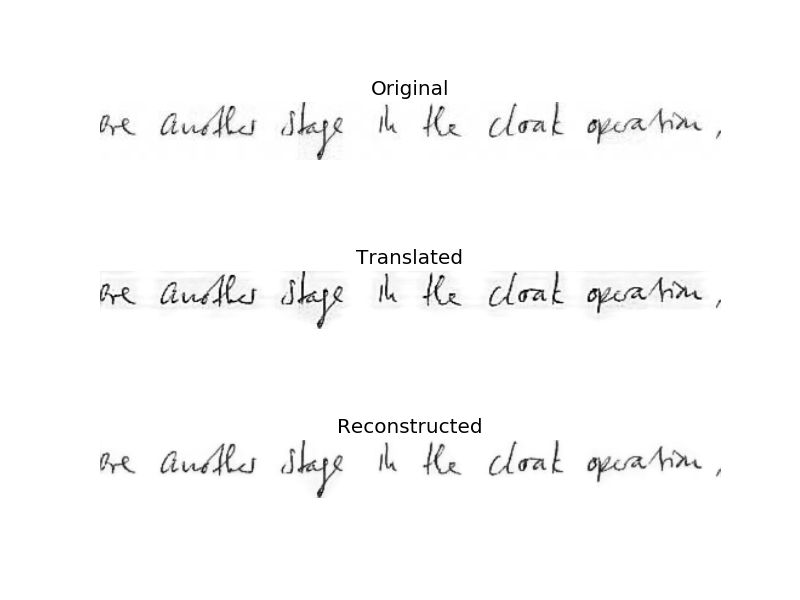 Original
are another stage in the cloak operation,
Translated
are another stage in the cloak operation,
Reconstructed
are another stage in the cloak operation,